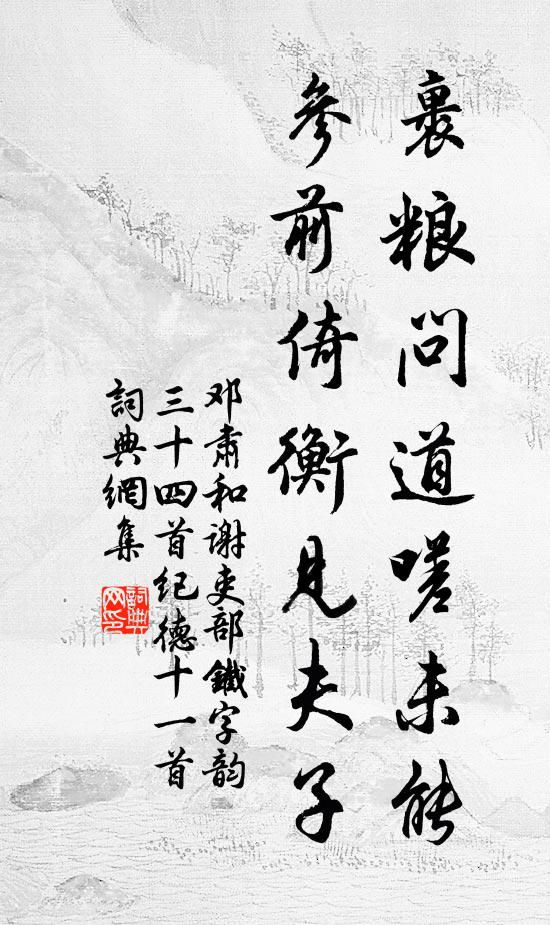 裹粮问道嗟未能
参前倚衡见夫子
邓肃和谢吏部鐵字韵
三十四首纪德十一首
詞典網集
詞典网印